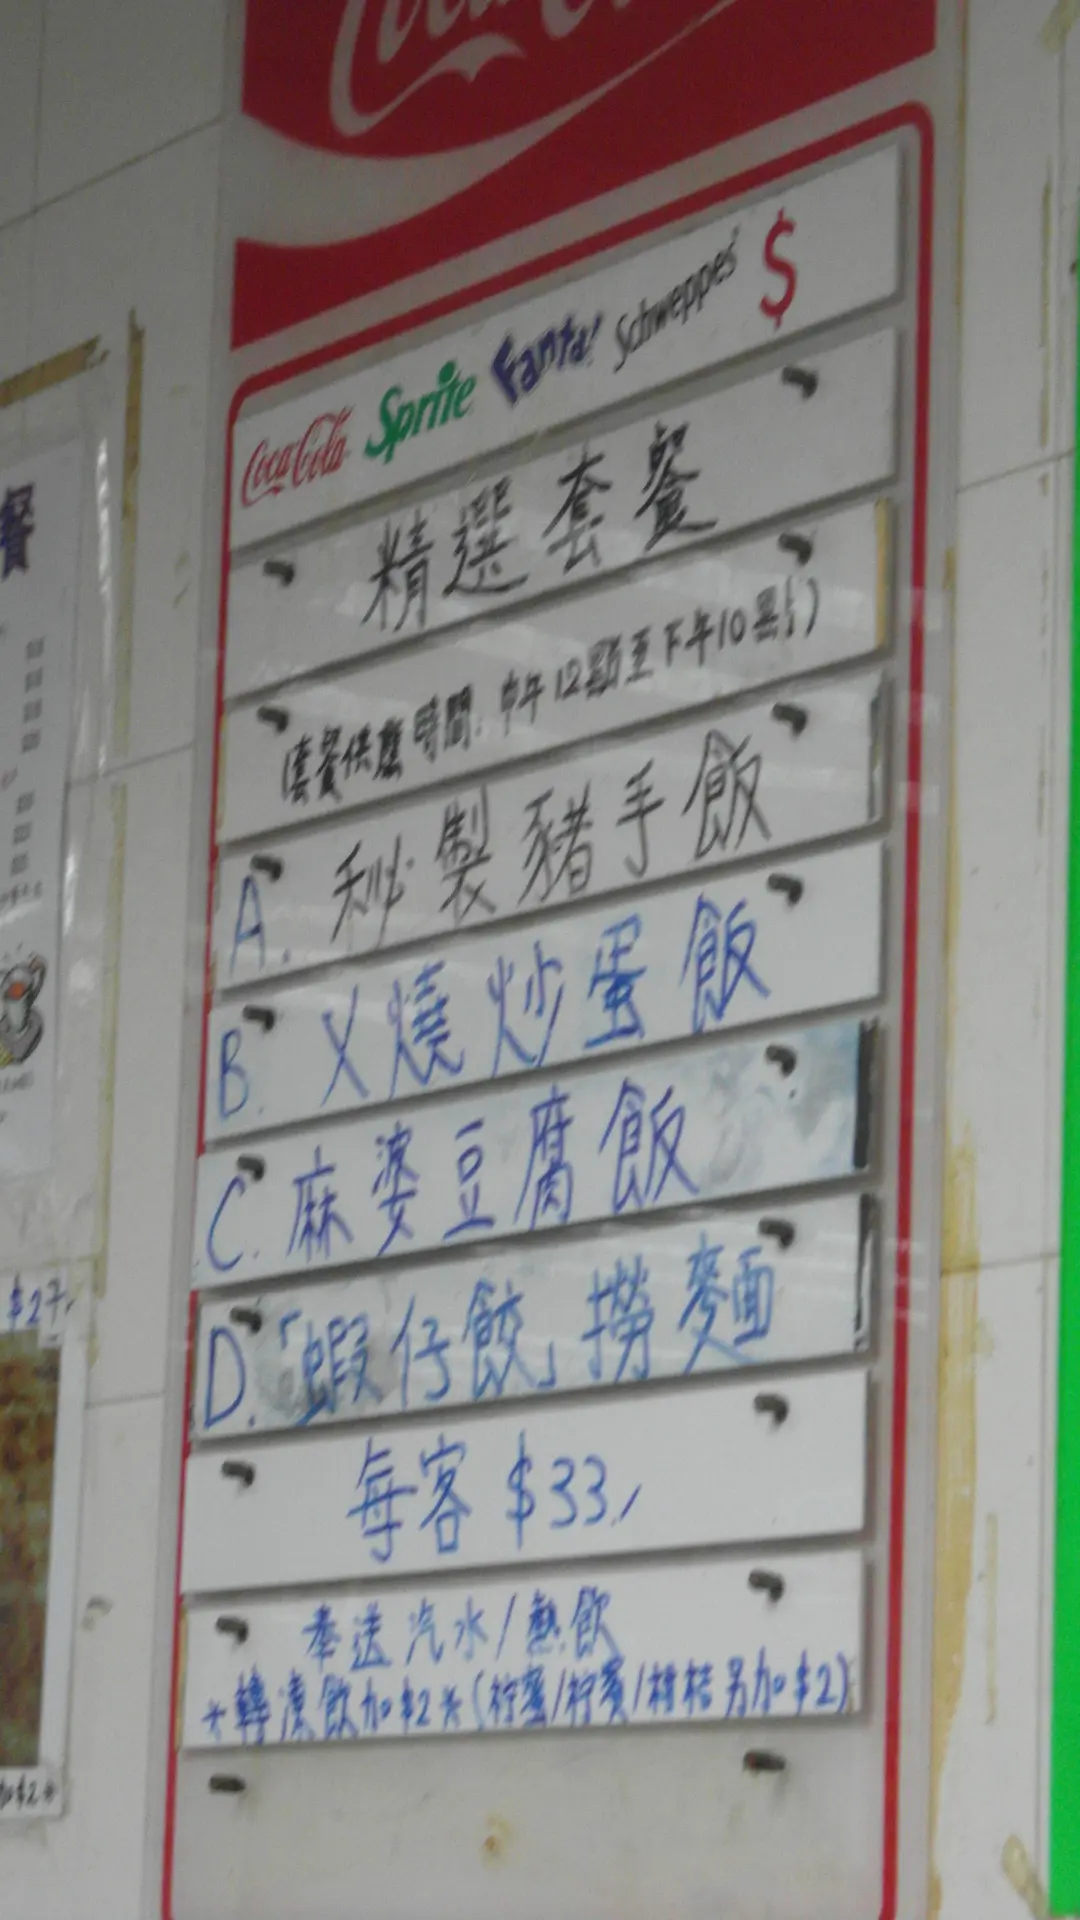 Coca-Cola
Coca-Cola Sprite Fanta! Schweppes $
精選套餐
(套餐供應時間:中午12點至下午10點)
A. 秘製豬手飯
B. 乂燒炒蛋飯
C. 麻婆豆腐飯
D. 「蝦仔餃」撈麵
每客 $33
奉送汽水/熱飲
*轉凍飲加$2*(柠蜜/柠賓/柑桔另加$2)
餐
$27
加$2*